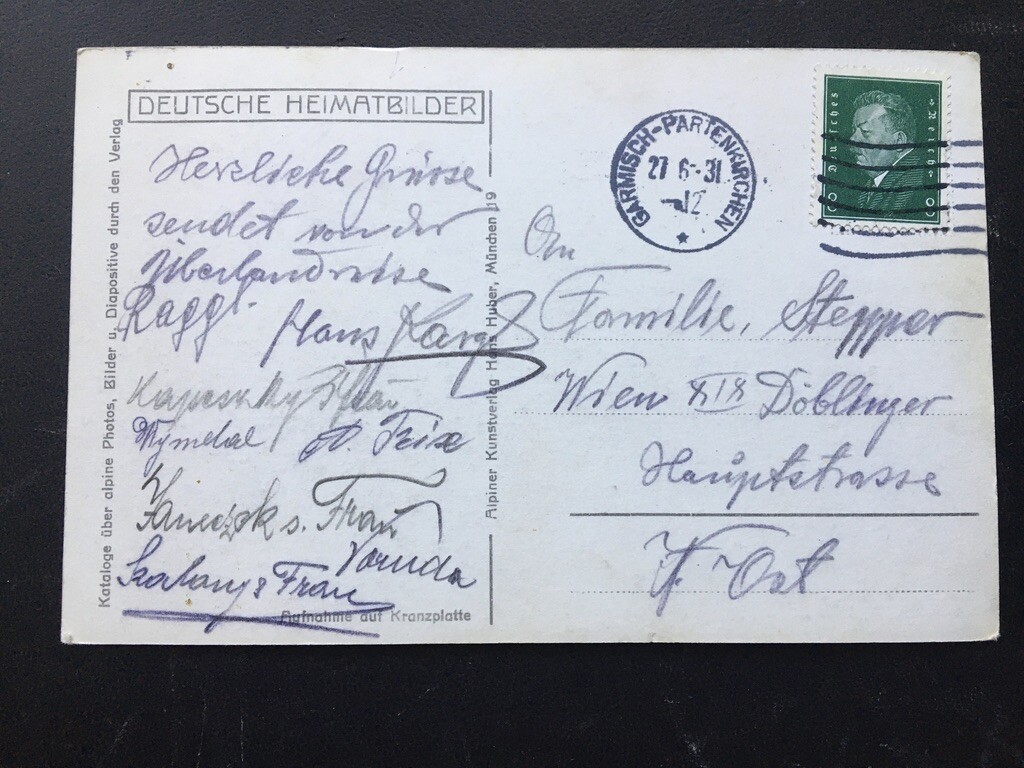 DEUTSCHE HEIMATBILDER
Herzliche Grüsse
sendet von der
Überlandreise
Raggi Hans Karg
Frau
Wymetal
s. Frau
Voruda
s Frau
Aufnahme auf Kranzplatte
Kataloge über alpine Photos, Bilder u. Diapositive durch den Verlag
Alpiner Kunstverlag Hans Huber, München 19
GARMISCH-PARTENKIRCHEN
27 6-31
12
Deutsches Reich
8 8
An
Familie, Stepper
Wien XIX Döblinger
Hauptstrasse
Ost